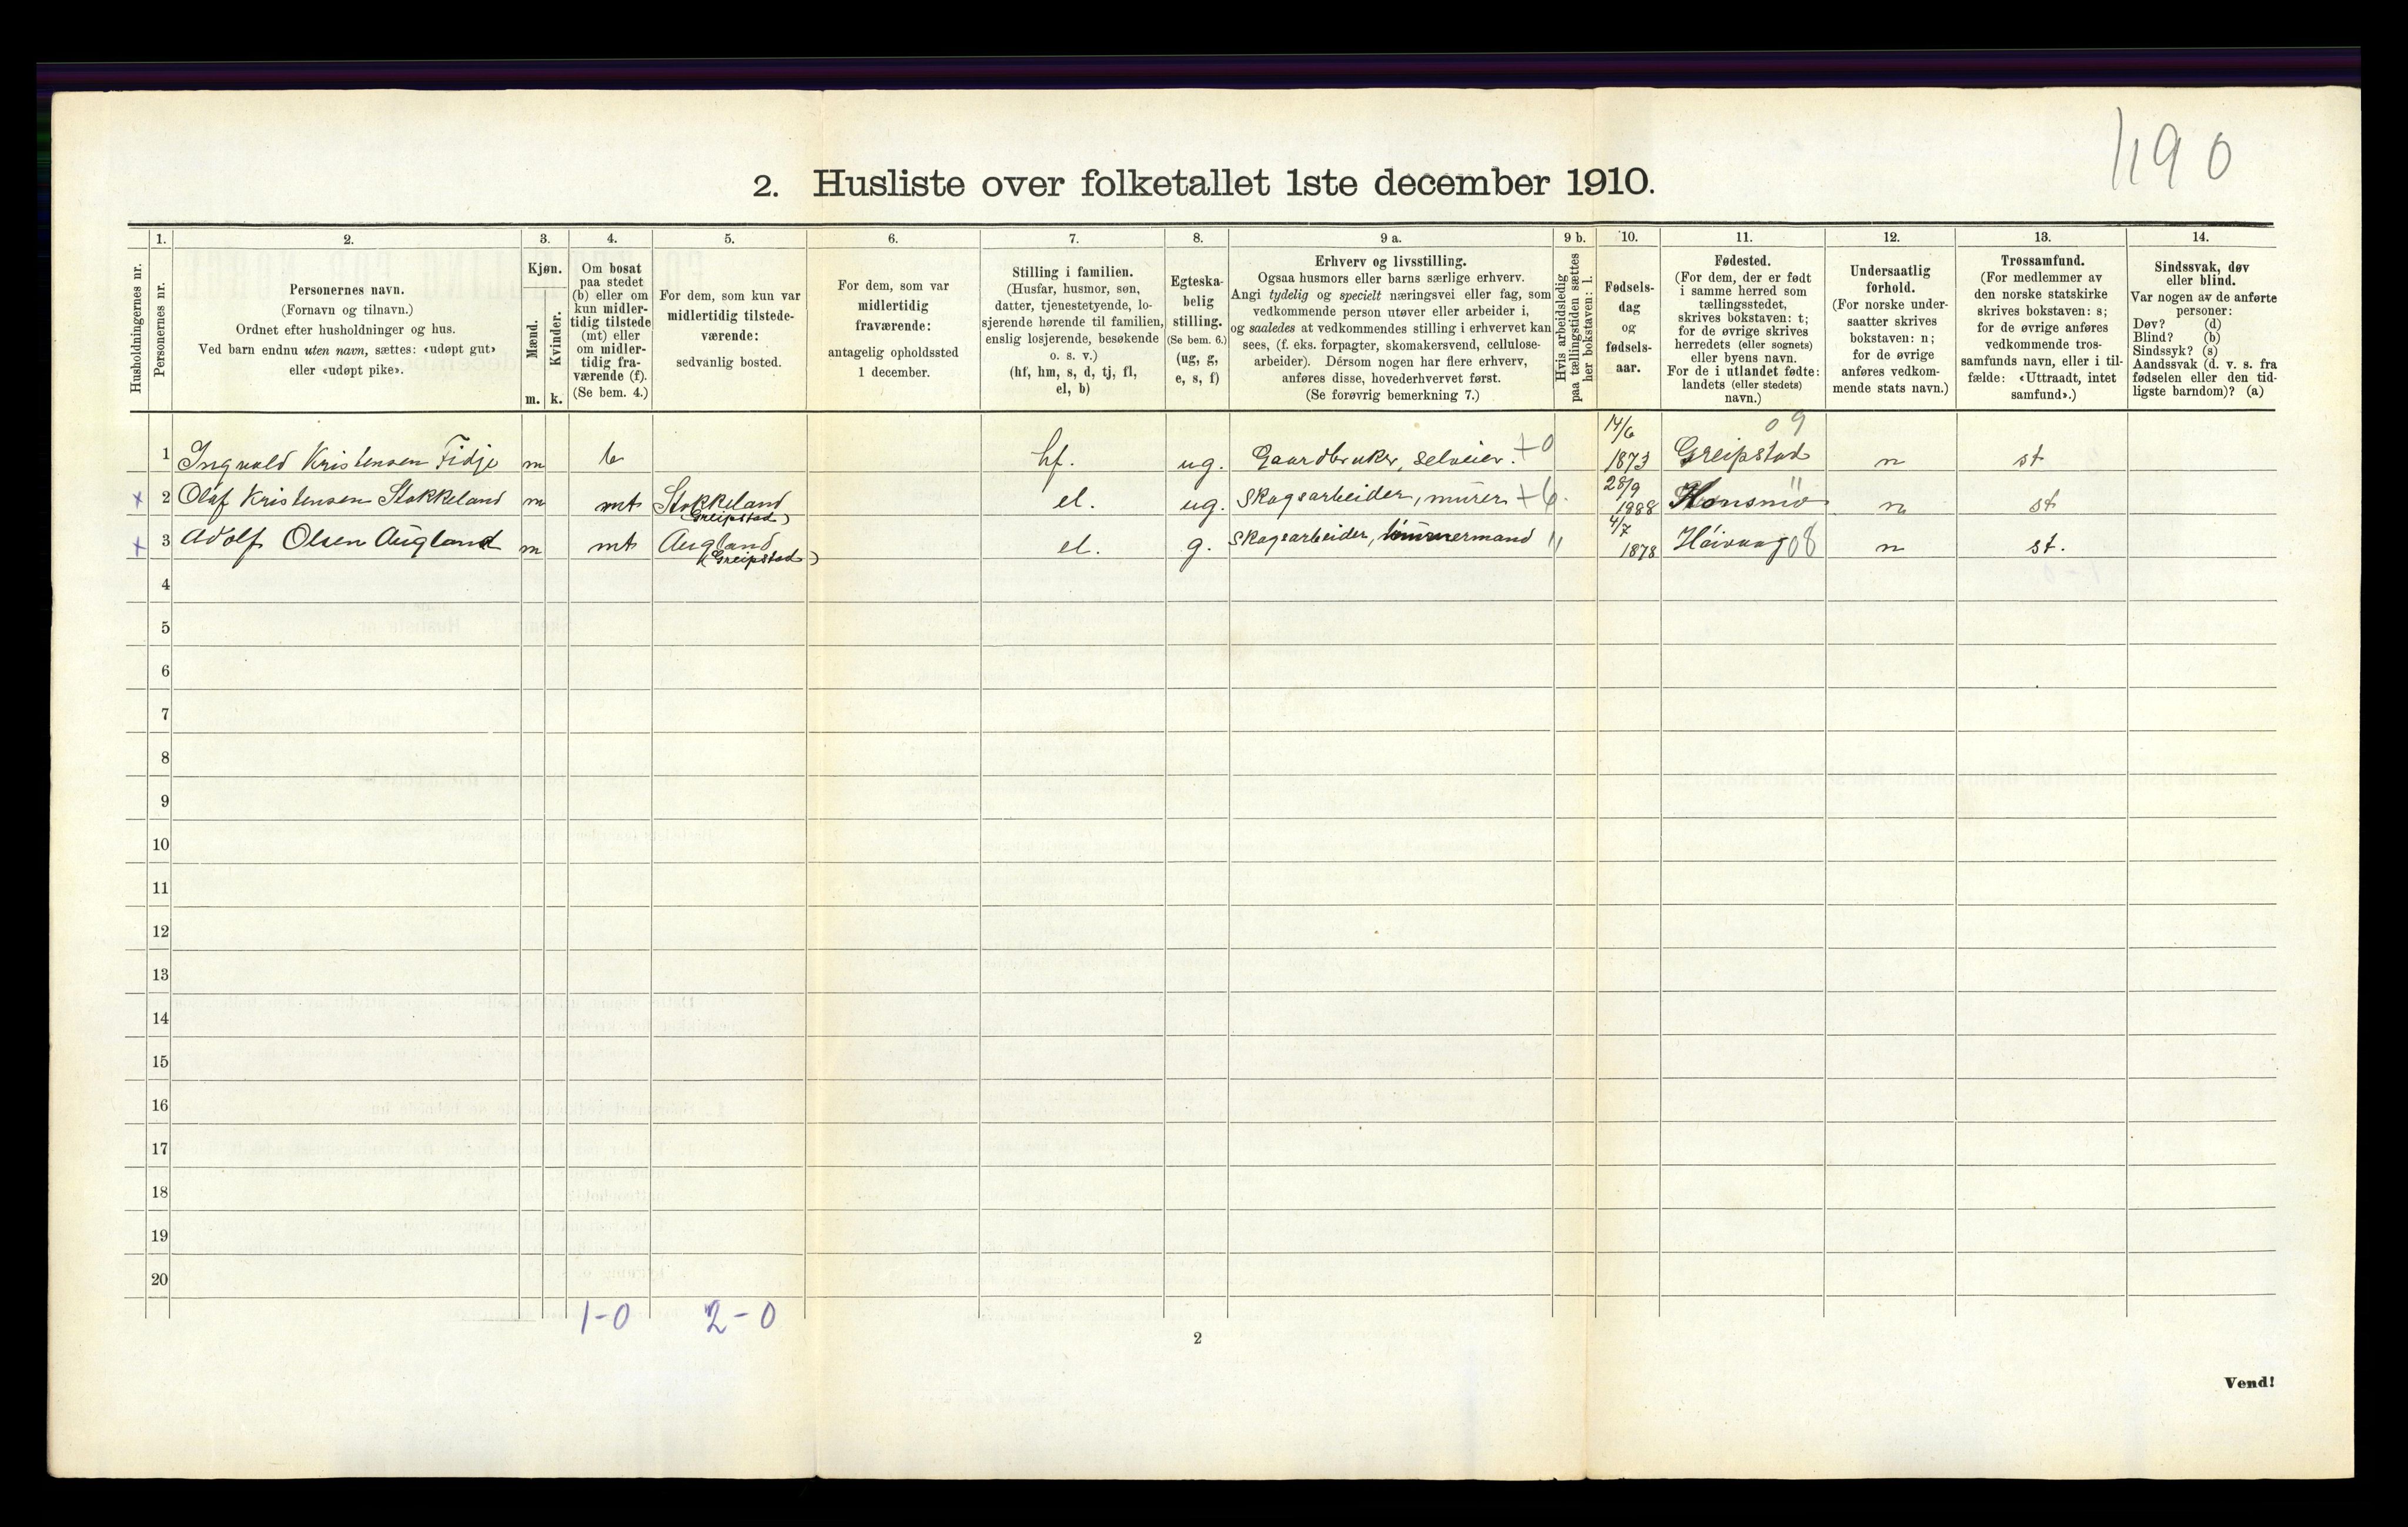 1190
2. Husliste over folketallet 1ste december 1910.
Husholdningernes nr.
1.
Personernes nr.
2.
Personernes navn.
(Fornavn og tilnavn.)
Ordnet efter husholdninger og hus.
Ved barn endnu uten navn, sættes: «udøpt gut»
eller «udøpt pike».
3.
Kjøn.
Mænd.
Kvinder.
m. k.
4.
Om bosat
paa stedet
(b) eller om
kun midler-
tidig tilstede
(mt) eller
om midler-
tidig fra-
værende (f).
(Se bem. 4.)
5.
For dem, som kun var
midlertidig tilstede-
værende:
sedvanlig bosted.
6.
For dem, som var
midlertidig
fraværende:
antagelig opholdssted
1 december.
7.
Stilling i familien.
(Husfar, husmor, søn,
datter, tjenestetyende, lo-
sjerende hørende til familien,
enslig losjerende, besøkende
o. s. v.)
(hf, hm, s, d, tj, fl,
el, b)
8.
Egteska-
belig
stilling.
(Se bem. 6.)
(ug, g,
e, s, f)
9 a.
Erhverv og livsstilling.
Ogsaa husmors eller barns særlige erhverv.
Angi tydelig og specielt næringsvei eller fag, som
vedkommende person utøver eller arbeider i,
og saaledes at vedkommendes stilling i erhvervet kan
sees, (f. eks. forpagter, skomakersvend, cellulose-
arbeider). Dérsom nogen har flere erhverv,
anføres disse, hovederhvervet først.
(Se forøvrig bemerkning 7.)
9 b.
Hvis arbeidsledig
paa tællingstiden sættes
her bokstaven: l.
10.
Fødsels-
dag
og
fødsels-
aar.
11.
Fødested.
(For dem, der er født
i samme herred som
tællingsstedet,
skrives bokstaven: t;
for de øvrige skrives
herredets (eller sognets)
eller byens navn.
For de i utlandet fødte:
landets (eller stedets)
navn.)
12.
Undersaatlig
forhold.
(For norske under-
saatter skrives
bokstaven: n;
for de øvrige
anføres vedkom-
mende stats navn.)
13.
Trossamfund.
(For medlemmer av
den norske statskirke
skrives bokstaven: s;
for de øvrige anføres
vedkommende tros-
samfunds navn, eller i til-
fælde: «Uttraadt, intet
samfund».)
14.
Sindssvak, døv
eller blind.
Var nogen av de anførte
personer:
Døv? (d)
Blind? (b)
Sindssyk? (s)
Aandssvak (d. v. s. fra
fødselen eller den tid-
ligste barndom)? (a)
1 Ingvald Kristensen Fidje m b hf. ug. Gaardbruker, selveier. +0 14/6 1873 Greipstad 09 n st
x 2 Olaf Kristensen Stokkeland m mt Stokkeland (Greipstad) el. ug. Skogsarbeider, murer +6. 28/9 1888 n st
x 3 Adolf Olsen Augland m mt Augland (Greipstad) el. g. Skogsarbeider, 4/7 1878 Høivaag 08 n st.
4
5
6
7
8
9
10
11
12
13
14
15
16
17
18
19
20
1-0 2-0
2
Vend!